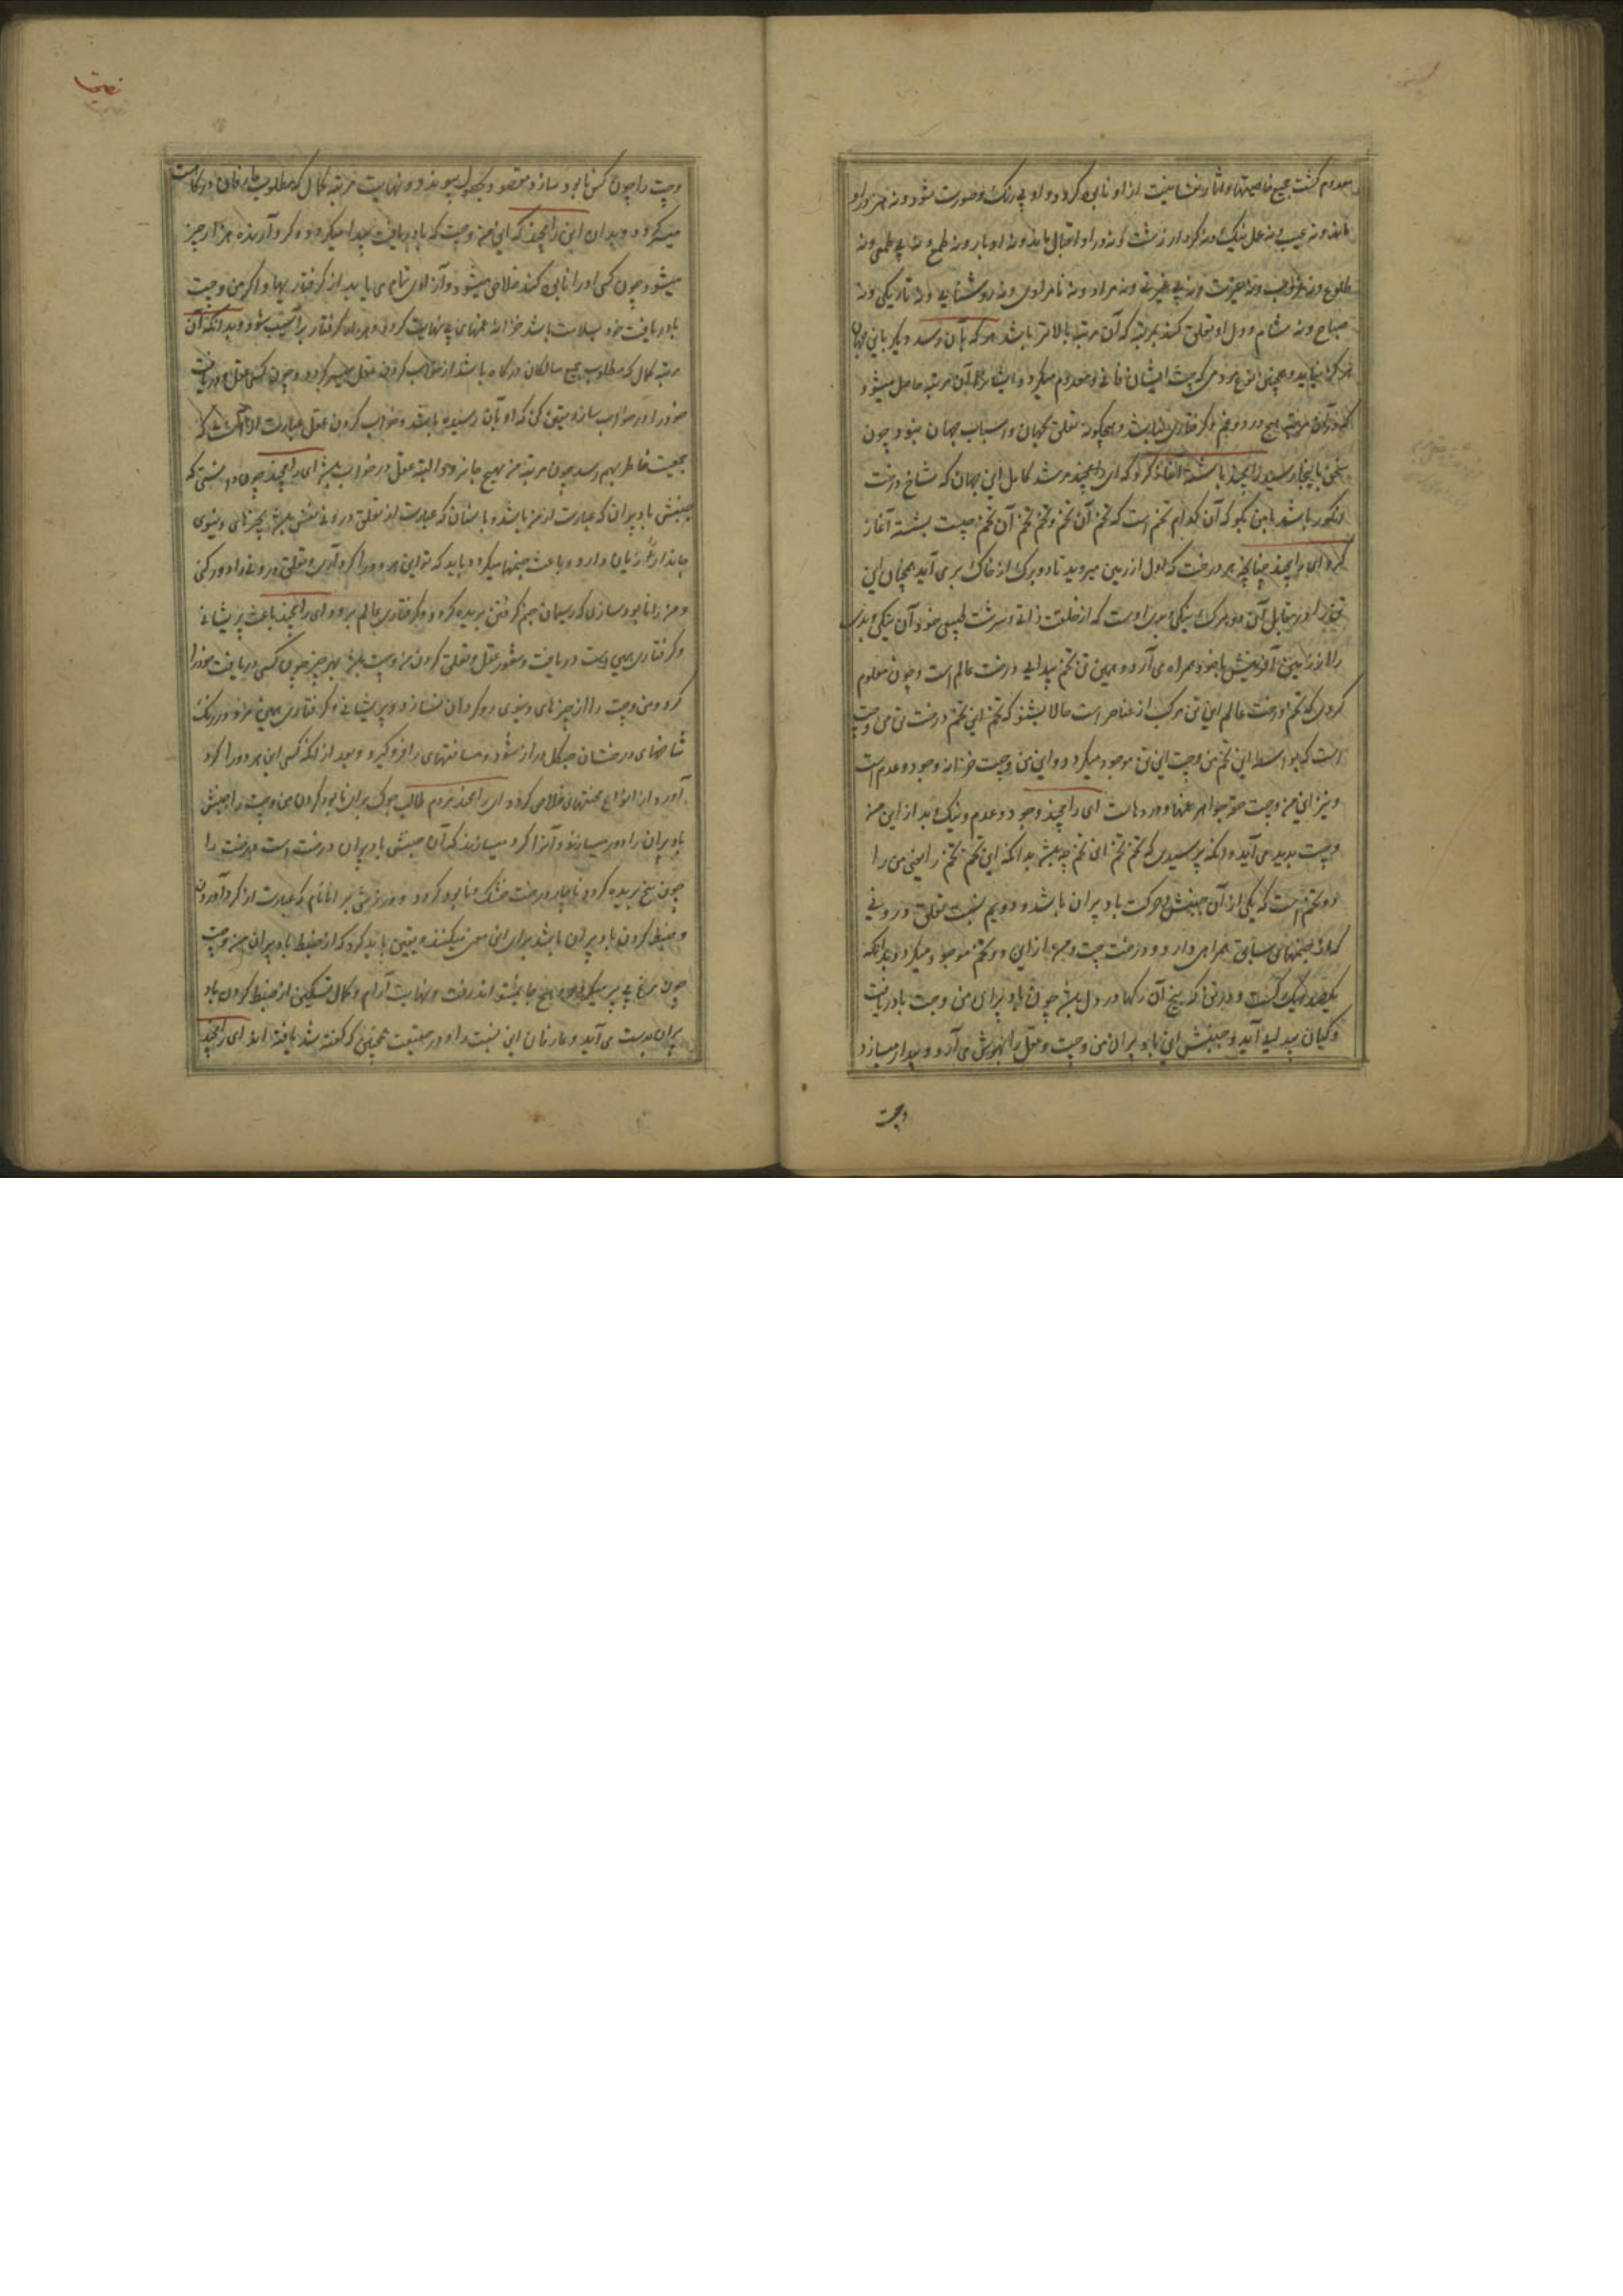 معدوم گشت جمیع خاصیتها و آثار منشأ نیت از او نابود گردد و او بی رنگ و صورت شود و نه هنر در او
ماند و نه عیب و نه عمل نیک و نه کردار زشت و نه در او اقبال ماند و نه ادبار و نه طمع و نه بی طمعی و نه
طلوع و نه غروب و نه غیرت و نه بی غیرتی و نه مراد و نه نامرادی و نه روشنایی و نه تاریکی و نه
صباح و نه شام و دل او تعلق کند بمرتبه که آن مرتبه بالاتر باشد هرکه بآن رسد دیگر باین جهان
هرگز نیاید و همچنین نوع مردمی که چت ایشان فانی و معدوم میگردد ایشانرا آن مرتبه حاصل میشود
که در آن مرتبه هیچ درد و غم و گرفتاری نباشد و هیچگونه تعلق بجهان و اسباب جهان نبود چون
سخن باینجا رسید رامچند با بشسته آغاز کرد که ای مرشد کامل این جهان که شاخ درخت
انگور باشد بمن بگو که آن کدام تخم است که تخم آن تخم و تخم تخم آن تخم چیست بشسته آغاز
کرد ای رامچند چنانچه هر درخت که اول از زمین میروید تا دو برگ از خاک بر می آید همچنان این
تن نیز در مقابل آن دو برگ نیکی و بدی اوست که از خلقت ذاتی و سرشت طبیعی خود آن نیکی و بدی
را از زمین آفرینش با خود همراه می آرد و همین تن تخم پیدایی درخت عالم است و چون معلوم
کردی که تخم درخت عالم این تن مرکب از عناصر است حالا بشنو که تخم این تخم درخت تن من و چت
است که بواسطه این تخم من و چت این تن موجود میگردد و این من و چت خزانه وجود و عدم است
و نیز این من و چت حقه جواهر غمها و دردهاست ای رامچند وجود و عدم و نیک و بد از این من
و چت پدید می آید و آنکه پرسیدی که تخم تخم این تخم چه باشد بدانکه این تخم تخم را یعنی من را
دو تخم است که یکی از آن جنبش و حرکت باد پران باشد و دویم نسبت تعلق درونی
که از جنمهای سابق همراه دارد و درخت چت و من از این دو تخم موجود میگردد و بدانکه
یکصد و یک رگ است در تن که بیخ آن رگها در دل باشد چون باد پران من و چت با دریافت
و گیان پدید آید و جنبش این باد پران من و چت و عقل را بهوش می آرد و بیدار میسازد
وچت
وچت را چون کس نابود سازد مقصود بحصول پیوندد و نهایت مرتبه کمال که مطلوب عارفان درگاهست
میسر گردد و بدان ای رامچند که این من و چت که با دریافت پیدا میگردد و گرد آرنده هزار چیز
میشود چون کسی او را نابود کند خلاص میشود و آزادی تمام می یابد از گرفتاریها و اگر من و چت
با دریافت خود بسلامت باشد خزانه غمهای بی نهایت گردد و بهمان گرفتار پر آسیب شود و بدانکه آن
مرتبه کمال که مطلوب جمیع سالکان درگاه باشد از خواب کردن عقل میسر گردد و چون کسی عقل و دریافت
خود را در خواب سازد یقین کن که او بآن رسیده باشد و خواب کردن عقل عبارت از آنست که
جمعیت خاطر بهم رسد چون مرتبه من بهیچ جا نرود البته عقل در خواب باشد ای رامچند چون دانستی که
جنبش باد پران که عبارت از من باشد و باسنان که عبارت از تعلق درونی نفس باشد بچیزهای دنیوی
جاندار را زیان دارد و باعث جنمها میگردد باید که تو این هر دو را گرد آری و تعلق درونی را دور کنی
و من را نابود سازی که ریسمان جنم گرفتن بریده گردد و گرفتاری عالم برود ای رامچند باعث پریشانی
و گرفتاری همین است دریافت و شعور عقل و تعلق کردن من و چت باشد بهر چیز چون کسی دریافت خود را
گرد و من و چت را از چیزهای دنیوی روگردان نسازد و پریشانی و گرفتاری همین هر روز در رنگ
شاخهای درختان جنگل دراز شود و مسافتهای را فرو گیرد و بعد از آنکه کسی این هر دو را گرد
آورد از انواع محنتها خلاص گردد ای رامچند مردم طالب جوگ برای نابود کردن من و چت را جنبش
باد پران را دور میسازند و آنرا گرد میسازند که آن جنبش باد پران درخت است و درخت را
چون بیخ بریده گردد ناچار درخت خشک و نابود گردد و ورزش پرانایام که عبارت از گرد آوردن
و ضبط کردن باد پران باشد برای این معنی میکنند و یقین باید کرد که از ضبط باد پران من و چت
چون مرغ بی پر میگردد و هیچ جا نمیتواند رفت و نهایت آرام و کمال تسکین از ضبط کردن باد
پران بدست می آید و عارفان این نسبت را در حقیقت همچنین که گفته شد یافته اند ای رامچند